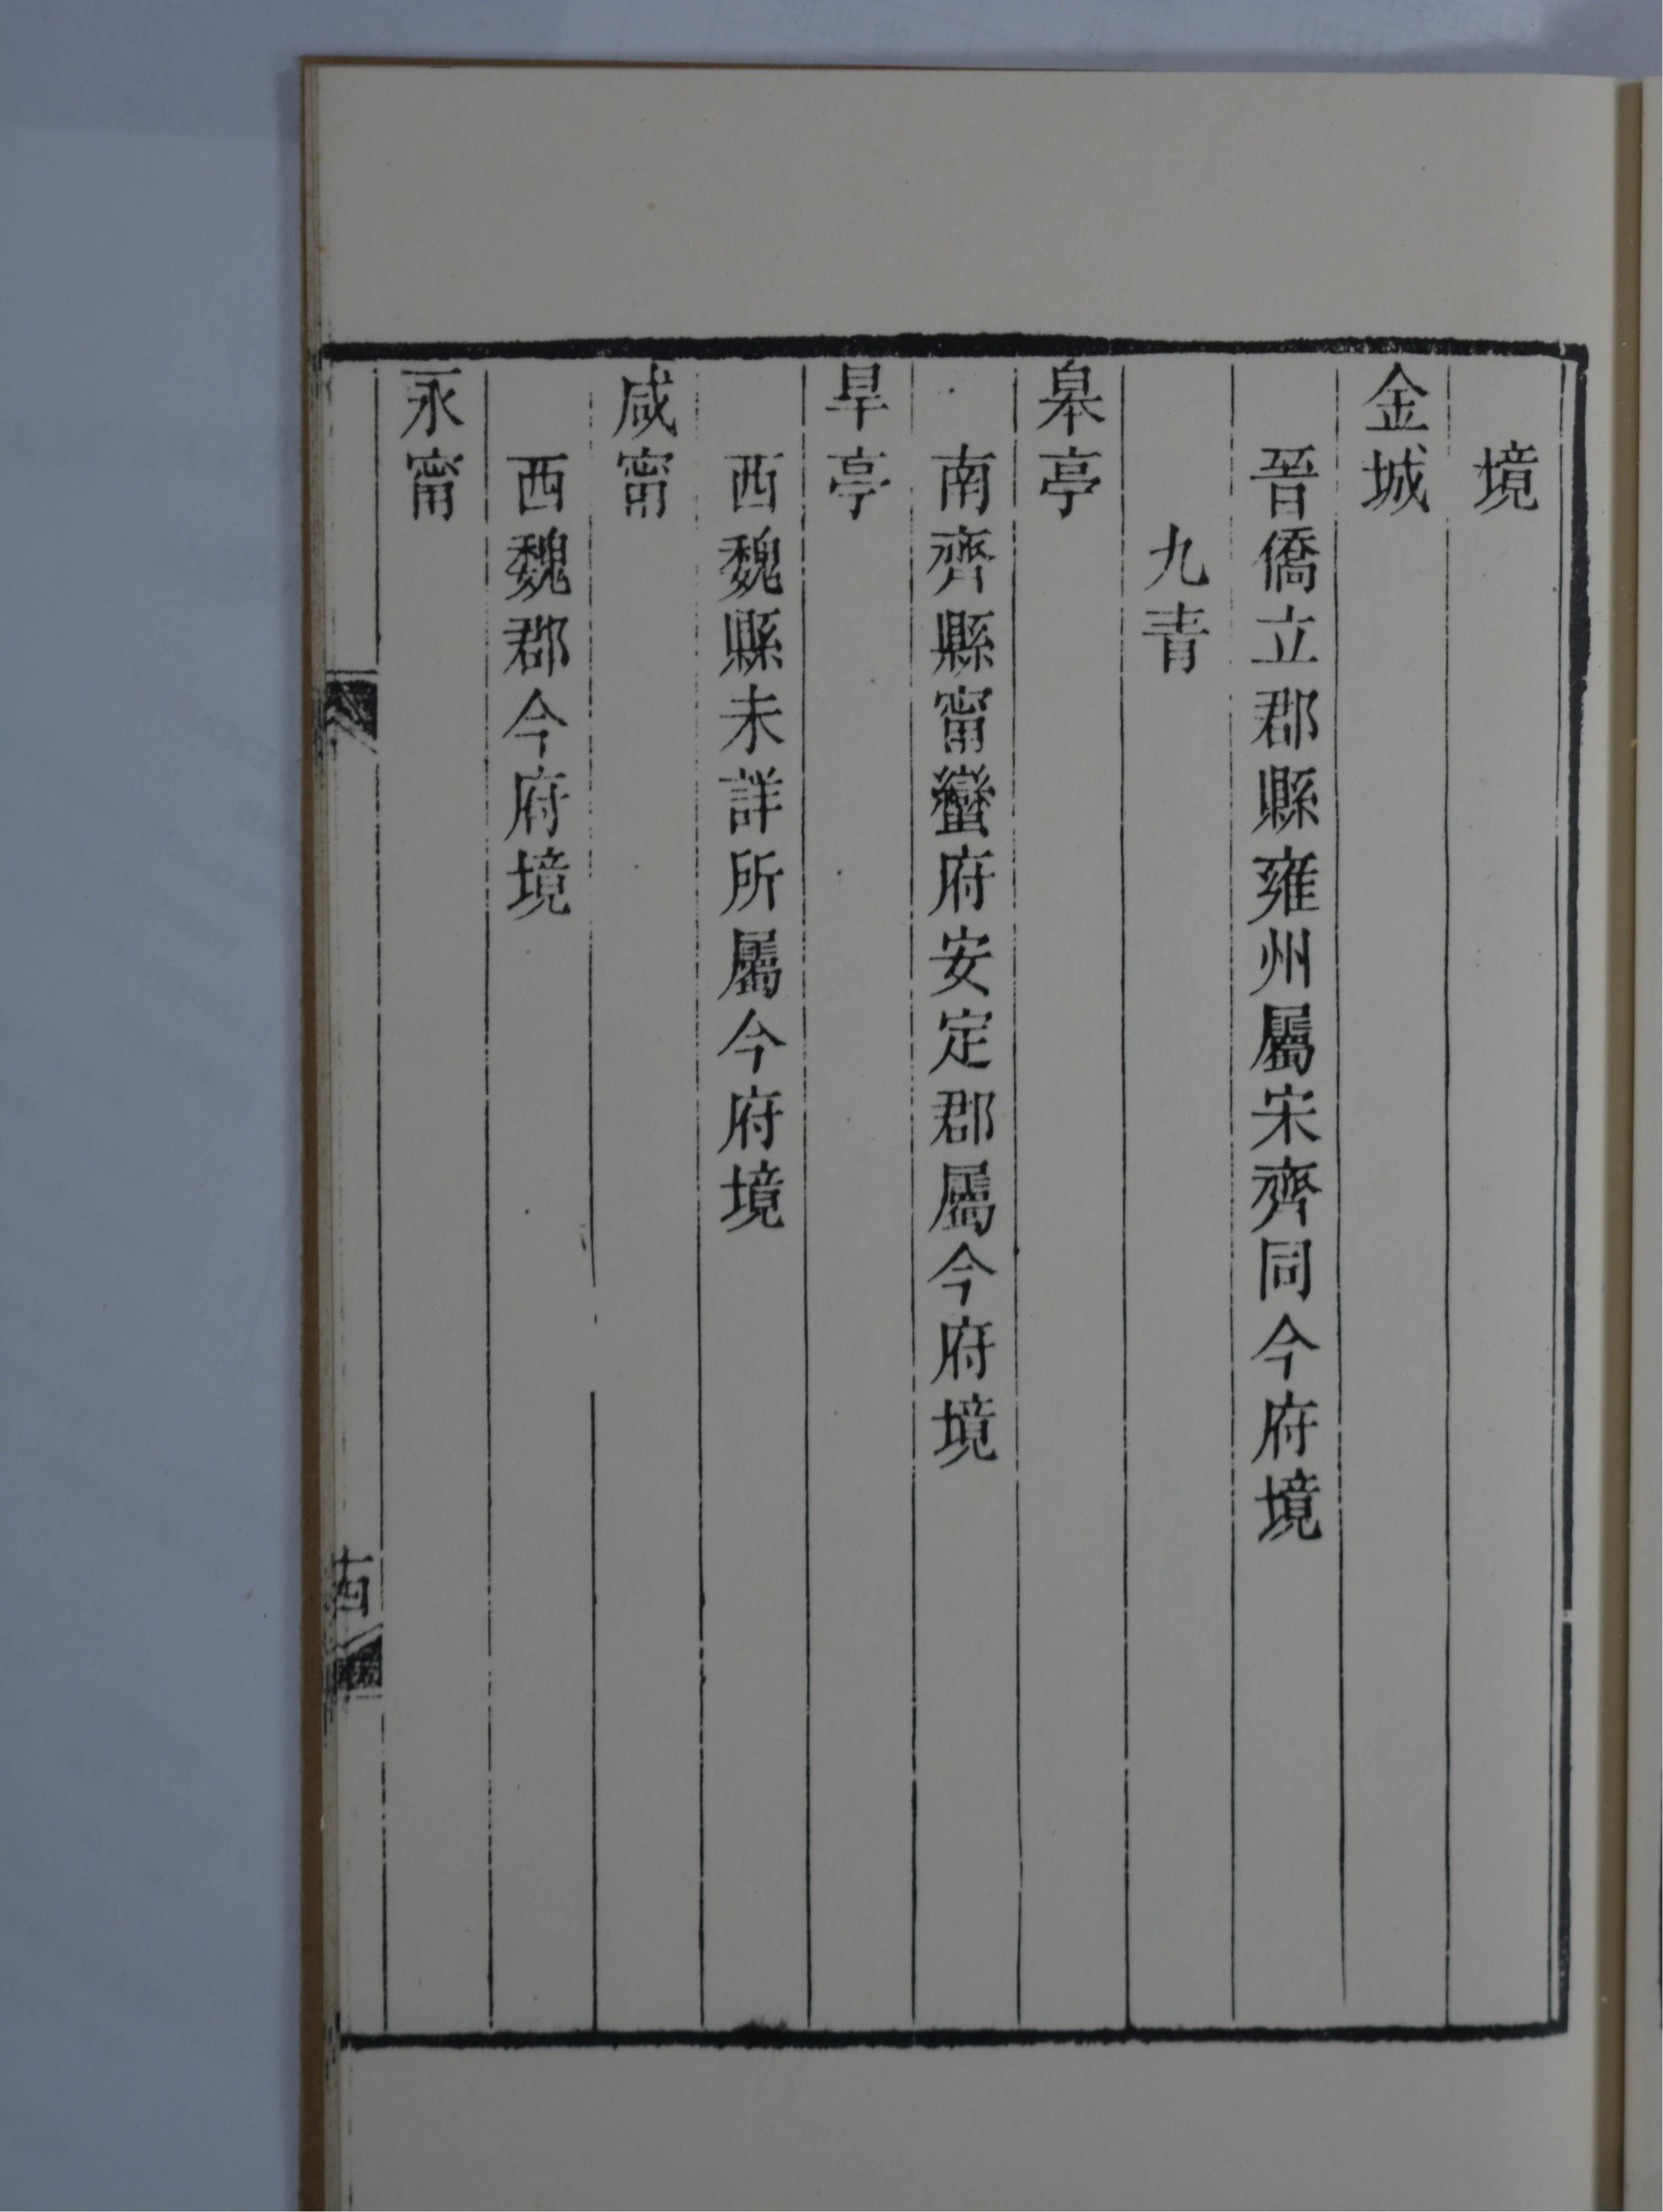 境
金城
晉僑立郡縣雍州屬宋齊同今府境
九青
皋亭
南齊縣甯蠻府安定郡屬今府境
旱亭
西魏縣未詳所屬今府境
咸甯
西魏郡今府境
永甯
十四